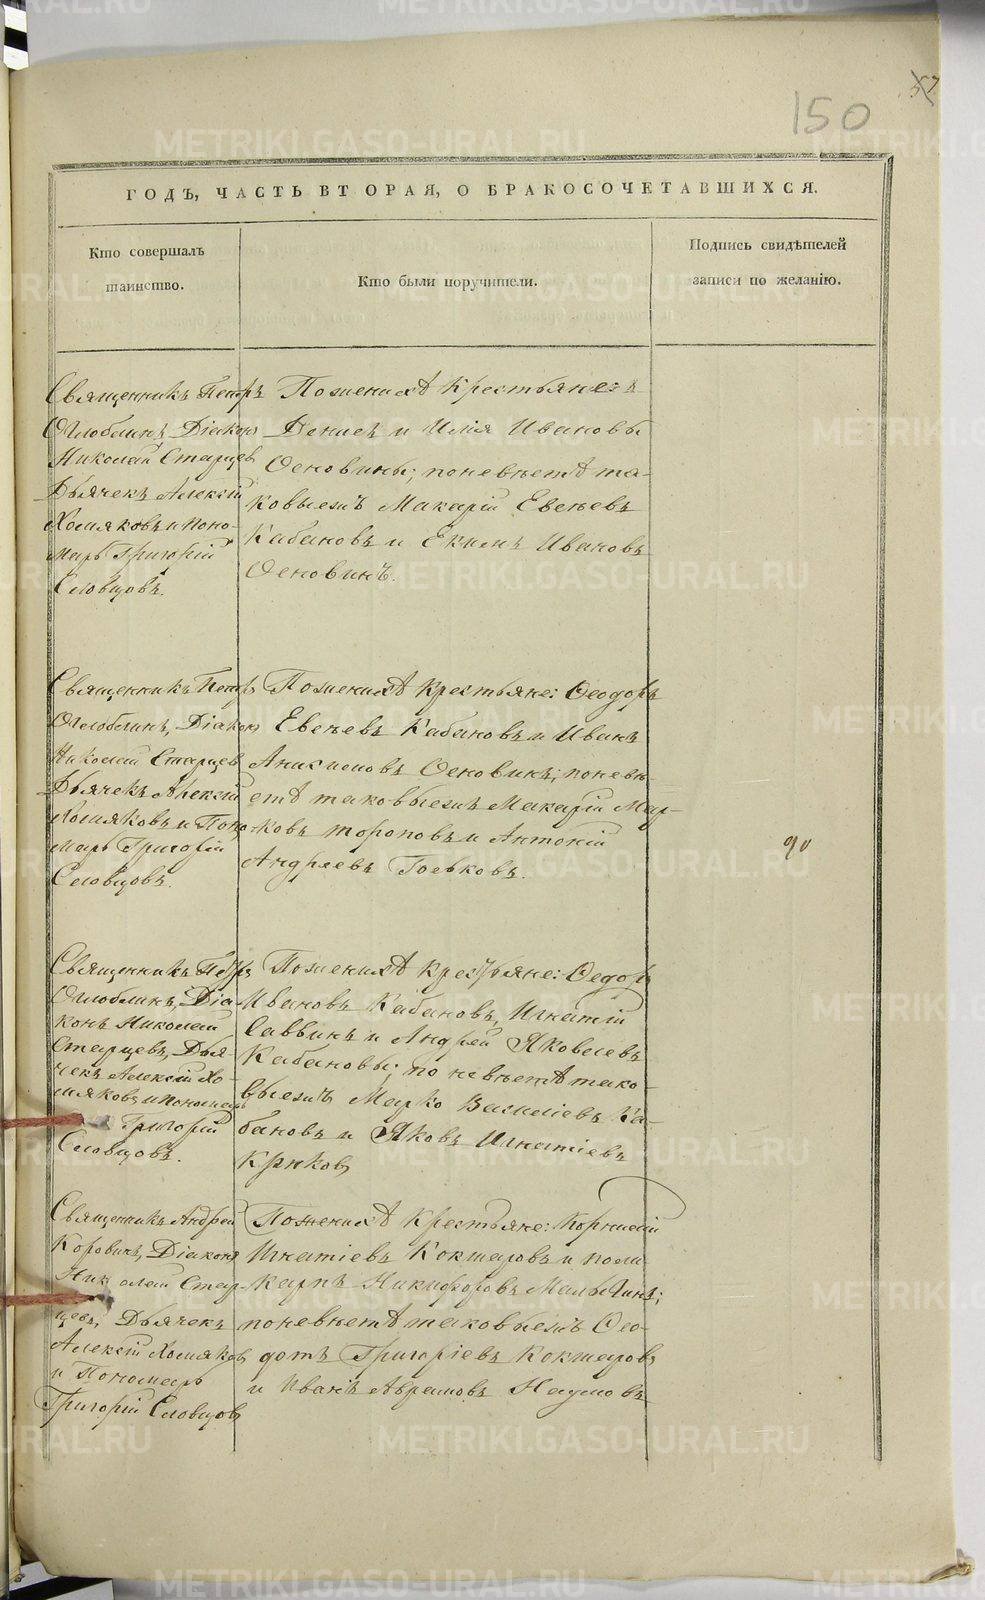 150
57
ГОДЪ, ЧАСТЬ ВТОРАЯ, О БРАКОСОЧЕТАВШИХСЯ.
Кто совершалъ
таинство.
Кто были поручители.
Подпись свидѣтелей
записи по желанію.
Священникъ Петръ
Оглоблинъ, Діаконъ
Николай Старцев
Дьячекъ Алексій
Хомяковъ и Поно-
марь Григорій
Словцовъ.
По женихѣ крестьяне:
Денисъ и Илія Ивановы
Осковины; по невѣстѣ та-
ковыежъ Макарій Евсѣевъ
Кабаковъ и Екимъ Ивановъ
Осковинъ.
Священникъ Петръ
Оглоблинъ, Діаконъ
Николай Старцевъ
Дьячекъ Алексій
Хомяковъ и Поно-
марь Григорій
Словцовъ.
По женихѣ крестьяне: Ѳеодоръ
Евсѣевъ Кабаковъ и Иванъ
Анисимовъ Осковинъ; по невѣ-
стѣ таковыежъ Макарій Мар-
ковъ Тороповъ и Антоній
Андреевъ Гоевковъ.
90
Священникъ Петръ
Оглоблинъ, Діа-
конъ Николай
Старцевъ, Дья-
чекъ Алексій Хо-
мяковъ и Пономарь
Григорій
Словцовъ.
По женихѣ крестьяне: Ѳедоръ
Ивановъ Кабаковъ, Игнатій
Саввинъ и Андрей Яковлевъ
Кабаковы; по невѣстѣ тако-
выежъ Марко Василіевъ Ка-
баковъ и Яковъ Игнатіевъ
Священникъ Андрей
Коровинъ, Діаконъ
Николай Стар-
цевъ, Дьячекъ
Алексій Хомяковъ
и Пономарь
Григорій Словцовъ
По женихѣ крестьяне: Корнилій
Игнатіевъ Кокшаровъ и Поли-
карпъ Никифоровъ Малыгинъ;
по невѣстѣ таковыежъ Ѳео-
дотъ Григоріевъ Кокшаровъ
и Иванъ Аврамовъ Наумовъ
METRIKI.GASO-URAL.RU